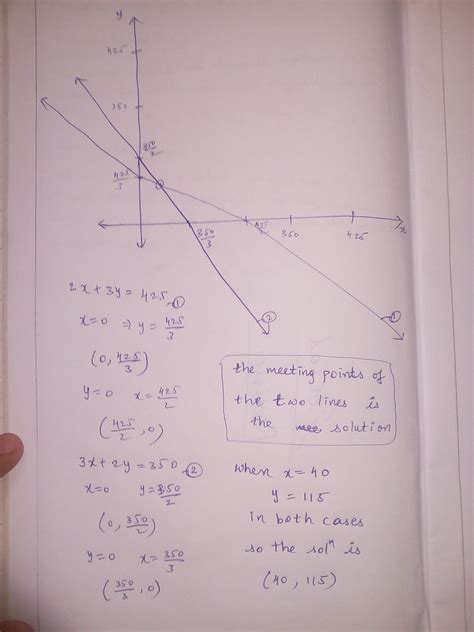 y
425
350
350/2
425/3
350/3
425/2
350
425
x
①
②
2x+3y = 425 ①
x=0 ⇒ y = 425/3
(0, 425/3)
y=0 x = 425/2
(425/2, 0)
3x+2y = 350 ②
x=0 y = 350/2
(0, 350/2)
y=0 x = 350/3
(350/3, 0)
the meeting points of
the two lines is
the solution
when x=40
y = 115
in both cases
so the solⁿ is
(40, 115)